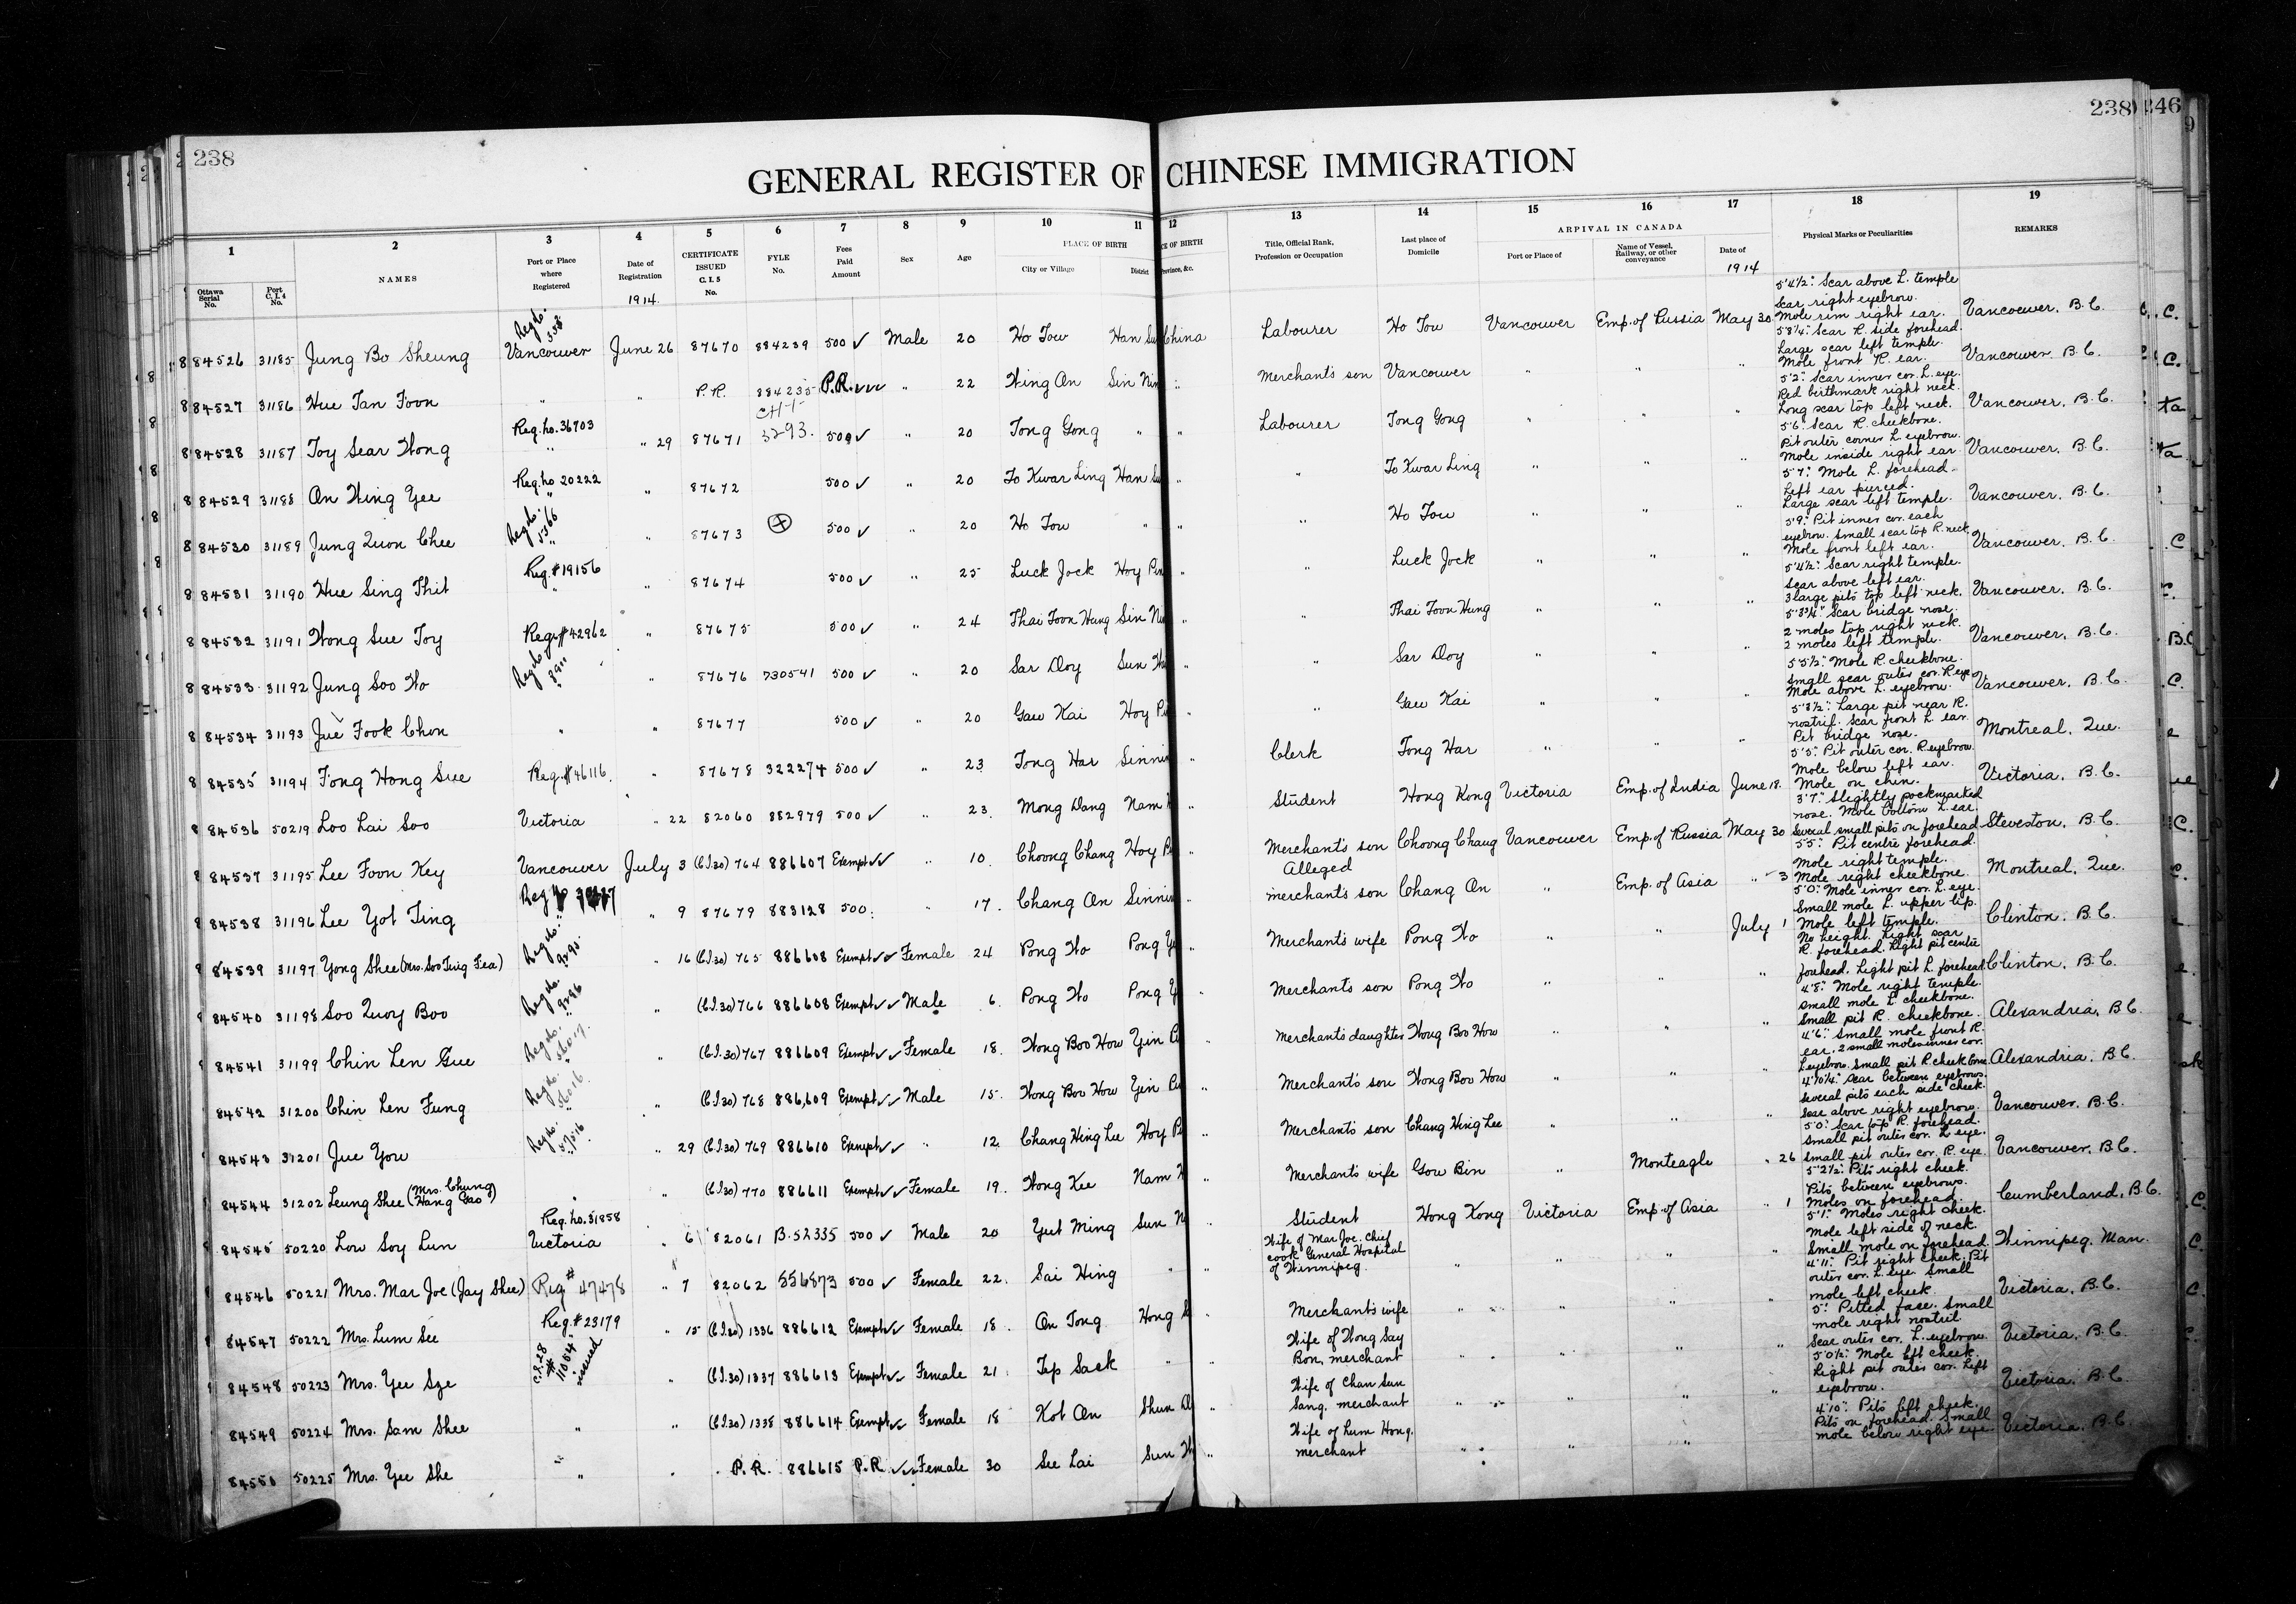 238
238
246
GENERAL REGISTER OF CHINESE IMMIGRATION
1 2 3 4 5 6 7 8 9 10 11 12 13 14 15 16 17 18 19
Ottawa Serial No. Port C. I. 4 No. NAMES Port or Place where Registered Date of Registration CERTIFICATE ISSUED C. I. 5 No. FYLE No. Fees Paid Amount Sex Age PLACE OF BIRTH City or Village District Province, &c. Title, Official Rank, Profession or Occupation Last place of Domicile ARRIVAL IN CANADA Port or Place of Name of Vessel, Railway, or other conveyance Date of Physical Marks or Peculiarities REMARKS
1914. 1914
84526 31185 Jung Bo Sheung Vancouver June 26 87670 884239 500 ✓ Male 20 Ho Tow Han Su China Labourer Ho Tow Vancouver Emp. of Russia May 30 5'4½". Scar above L. temple Scar right eyebrow. Mole rim right ear. Vancouver, B.C.
84527 31186 Hue Tan Foon " " P.R. 884235 P.R. ✓✓ " 22 Wing On Sin Nin " Merchant's son Vancouver " " " 5'8¼". Scar R. side forehead. Large scar left temple. Mole front R. ear. Vancouver, B.C.
84528 31187 Toy Sear Wong Reg. No. 36703 " " 29 87671 3293. 500 ✓ " 20 Tong Gong " " Labourer Tong Gong " " " 5'2". Scar inner cor. L. eye. Red birthmark right neck. Long scar top left neck. Vancouver, B.C.
84529 31188 On Wing Yee Reg. No 20222 " " 87672 500 ✓ " 20 To Kwar Ling Han Su " To Kwar Ling " " " 5'6". Scar R. cheekbone. Pit outer corner L. eyebrow. Mole inside right ear. Vancouver, B.C.
84530 31189 Jung Quon Chee Reg No. 5366 " " 87673 500 ✓ " 20 Ho Tow " " " Ho Tow " " " 5'7". Mole L. forehead. Left ear pierced. Large scar left temple. Vancouver, B.C.
84531 31190 Hue Sing Thit Reg. # 19156 " " 87674 500 ✓ " 25 Luck Jock Hoy Pin " " Luck Jock " " " 5'9". Pit inner cor. each eyebrow. Small scar top R. neck. Mole front left ear. Vancouver, B.C.
84532 31191 Wong Sue Toy Reg # 42962 " 87675 500 ✓ " 24 Thai Foon Hung Sin Nin " " Thai Foon Hung " " " 5'4½". Scar right temple. Scar above left ear. 3 large pits top left neck. Vancouver, B.C.
84533 31192 Jung Soo Ho Reg No. 8911 " " 87676 730541 500 ✓ " 20 Sar Doy Sun " " Sar Doy " " " 5'3¾" Scar bridge nose. 2 moles top right neck. 2 moles left temple. Vancouver, B.C.
84534 31193 Jue Fook Chon " " 87677 500 ✓ " 20 Gaw Kai Hoy Pi " " Gaw Kai " " " 5'5½". Mole R. cheekbone. Small scar outer cor. R. eye. Mole above L. eyebrow. Vancouver, B.C.
84535 31194 Fong Hong Sue Reg. # 46116. " 87678 322274 500 ✓ " 23 Tong Har Sinnin " Clerk Tong Har " " " 5'3½". Large pit near R. nostril. Scar front L. ear. Pit bridge nose. Montreal, Que.
84536 50219 Loo Lai Soo Victoria " 22 82060 882979 500 ✓ " 23. Mong Dang Nam " Student Hong Kong Victoria Emp. of India June 18. 5'5". Pit outer cor. R. eyebrow. Mole below left ear. Mole on chin. Victoria, B.C.
84537 31195 Lee Foon Key Vancouver July 3 (C.I.30) 764 886607 Exempt ✓✓ " 10. Choong Chang Hoy P " Merchant's son Choong Chang Vancouver Emp. of Russia May 30 3'7". Slightly pockmarked nose. Mole bottom L. ear. Several small pits on forehead. Steveston, B.C.
84538 31196 Lee Yot Ting " 9 87679 883128 500. " 17. Chang On Sinnin " Alleged merchant's son Chang On " Emp. of Asia " 3 5'5". Pit centre forehead. Mole right temple. Mole right cheekbone. Montreal, Que.
84539 31197 Yong Shee (Mrs. Soo Ting Fea) Reg No. 9295 " 16 (C.I.30) 765 886608 Exempt ✓✓ Female 24 Pong Wo Pong Y " Merchant's wife Pong Wo " " July 1 5'0". Mole inner cor. L. eye. Small mole L. upper lip. Mole left temple. Clinton, B.C.
84540 31198 Soo Quoy Boo Reg No. 9296 " (C.I.30) 766 886608 Exempt ✓✓ Male 6. Pong Wo Pong Y " Merchant's son Pong Wo " " " No height. Light scar R. forehead. Light pit centre forehead. Light pit L. forehead. Clinton, B.C.
84541 31199 Chin Len Gue Reg No. 56017. " (C.I.30) 767 886609 Exempt ✓✓ Female 18. Wong Boo How Yin P Merchant's daughter Wong Boo How " " " 4'8". Mole right temple. Small mole L. cheekbone. Small pit R. cheekbone. Alexandria, B.C.
84542 31200 Chin Len Fung Reg No. 56016. " (C.I.30) 768 886609 Exempt ✓✓ Male 15. Wong Boo How Yin P " Merchant's son Wong Boo How " " " 4'6". Small mole front R. ear. 2 small moles inner cor. L. eyebrow. Small pit R. cheekbone. Alexandria, B.C.
84543 31201 Jue You Reg No. 57516 " 29 (C.I.30) 769 886610 Exempt ✓✓ " 12 Chang Hing Lee Hoy P " Merchant's son Chang Hing Lee " " " 4'10¼". Scar between eyebrows. Several pits each side cheek. Scar above right eyebrow. Vancouver, B.C.
84544 31202 Leung Shee (Mrs. Chung Hang Gao) " " (C.I.30) 770 886611 Exempt ✓✓ Female 19. Wong Kee Nam " Merchant's wife Gow Bin " Monteagle " 26 5'0". Scar top R. forehead. Small pit outer cor. L. eye. Small pit outer cor. R. eye. Vancouver, B.C.
84545 50220 Low Soy Lun Reg. No. 31858 Victoria " 6 82061 B.52335 500 ✓ Male 20 Yut Ming Sun N " Student Hong Kong Victoria Emp. of Asia " 1 5'2½". Pits right cheek. Pits between eyebrows. Moles on forehead. Cumberland, B.C.
84546 50221 Mrs. Mar Joe (Jay Shee) Reg # 47478 " 7 82062 556873 500 ✓ Female 22. Sai Hing " " Wife of Mar Joe. Chief cook General Hospital of Winnipeg. " " " " 5'1". Moles right cheek. Mole left side of neck. Small mole on forehead. Winnipeg, Man.
84547 50222 Mrs. Lum See Reg. # 23179 " 15 (C.I.30) 1336 886612 Exempt ✓✓ Female 18. On Tong Hong S Merchant's wife " " " " 4'11". Pit right cheek. Pit outer cor. L. eye. Small mole left cheek. Victoria, B.C.
84548 50223 Mrs. Yee Sze C.I.28 # 11054 issued " (C.I.30) 1337 886613 Exempt ✓✓ Female 21. Tip Sack " " Wife of Wong Say Bon, merchant " " " " 5'. Pitted face. Small mole right nostril. Scar outer cor. L. eyebrow. Victoria, B.C.
84549 50224 Mrs. Sam Shee " " (C.I.30) 1338 886614 Exempt ✓✓ Female 18 Kot On Shun D " Wife of Chan Sun Sang, merchant " " " " 5'0½". Mole left cheek. Light pit outer cor. left eyebrow. Victoria, B.C.
84550 50225 Mrs. Yee She " " P.R. 886615 P.R ✓✓ Female 30 See Lai Sun " Wife of Lum Hong, merchant " " " 4'10". Pits left cheek. Pits on forehead. Small mole below right eye. Victoria, B.C.